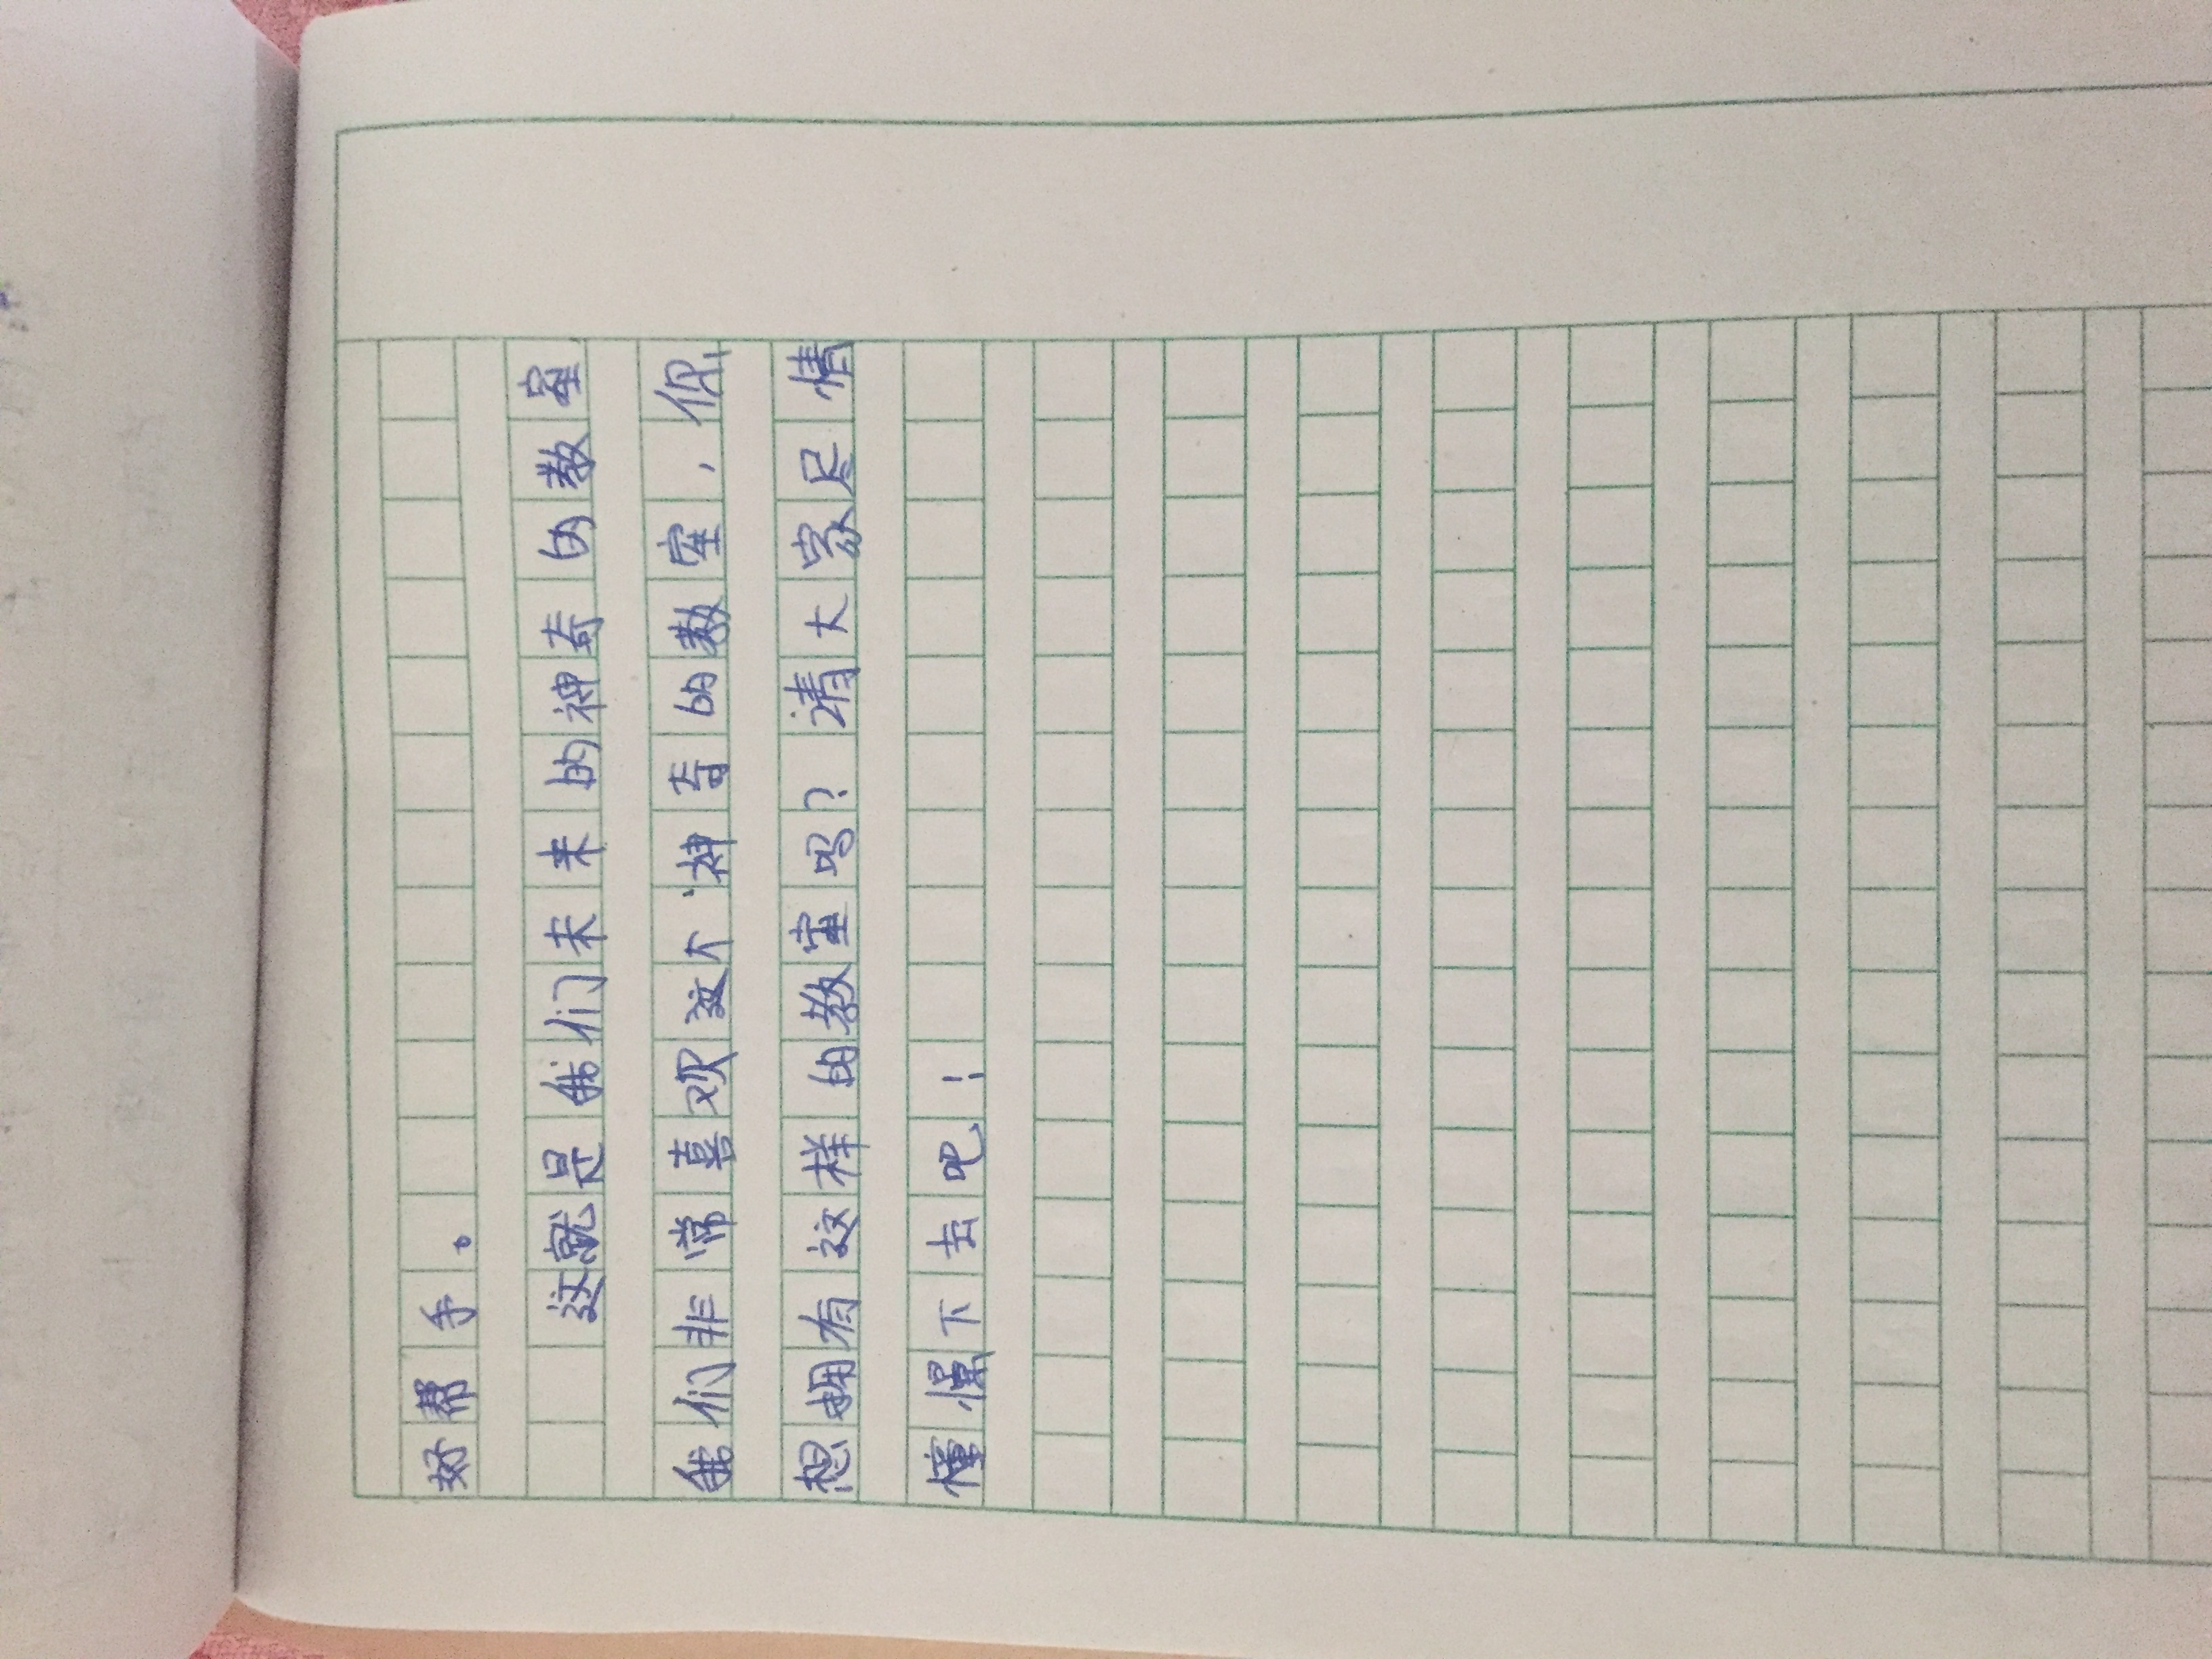 好帮手。
这就是我们未来的神奇的教室
我们非常喜欢这个神奇的教室，你
想拥有这样的教室吗？请大家尽情
憧憬下去吧！